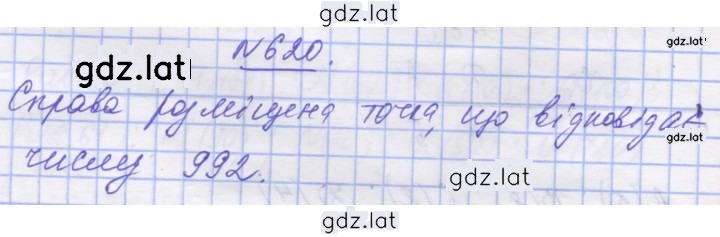 gdz.lat
№620.
gdz.lat gdz.lat
Справа розміщена точка, що відповідає
gdz.lat
числу 992.
gdz.lat
gdz.lat